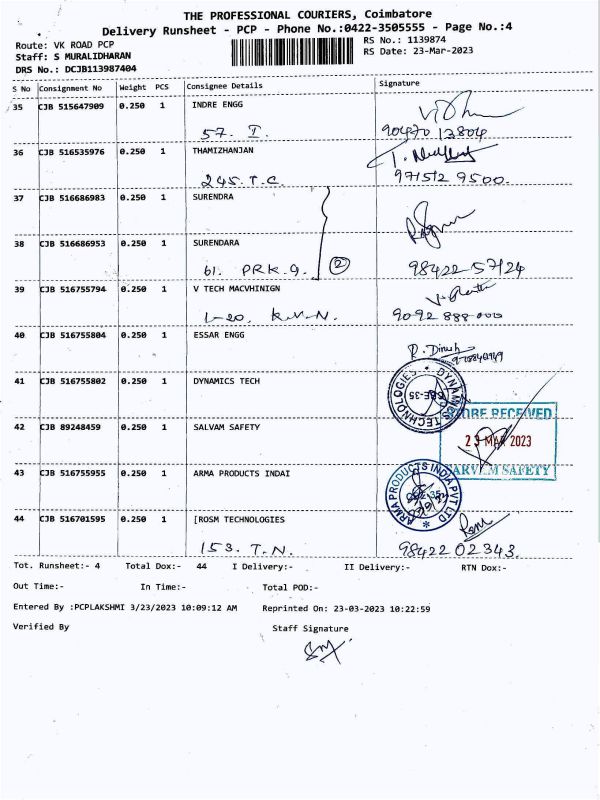 THE PROFESSIONAL COURIERS, Coimbatore
Delivery Runsheet - PCP - Phone No.:0422-3505555 - Page No.:4
Route: VK ROAD PCP RS No.: 1139874
Staff: S MURALIDHARAN RS Date: 23-Mar-2023
DRS No.: DCJB113987404
S No Consignment No Weight PCS Consignee Details Signature
35 CJB 515647909 0.250 1 INDRE ENGG
57. I. 90470 13804
36 CJB 516535976 0.250 1 THAMIZHANJAN
245. T.C. 971512 9500.
37 CJB 516686983 0.250 1 SURENDRA
38 CJB 516686953 0.250 1 SURENDARA
61. PRK.9. 2 98422 57124
39 CJB 516755794 0.250 1 V TECH MACVHINIGN
1-20. K.V.N. 9092 888 000
40 CJB 516755804 0.250 1 ESSAR ENGG
R. Dinesh
41 CJB 516755802 0.250 1 DYNAMICS TECH
DYNAMICS TECHNOLOGIES
CBE-35
STORE RECEIVED
42 CJB 89248459 0.250 1 SALVAM SAFETY
23 MAR 2023
SARVAM SAFETY
43 CJB 516755955 0.250 1 ARMA PRODUCTS INDAI
ARMA PRODUCTS INDIA PVT LTD
44 CJB 516701595 0.250 1 [ROSM TECHNOLOGIES
153. T.N. 98422 02343.
Tot. Runsheet:- 4 Total Dox:- 44 I Delivery:- II Delivery:- RTN Dox:-
Out Time:- In Time:- Total POD:-
Entered By :PCPLAKSHMI 3/23/2023 10:09:12 AM Reprinted On: 23-03-2023 10:22:59
Verified By Staff Signature